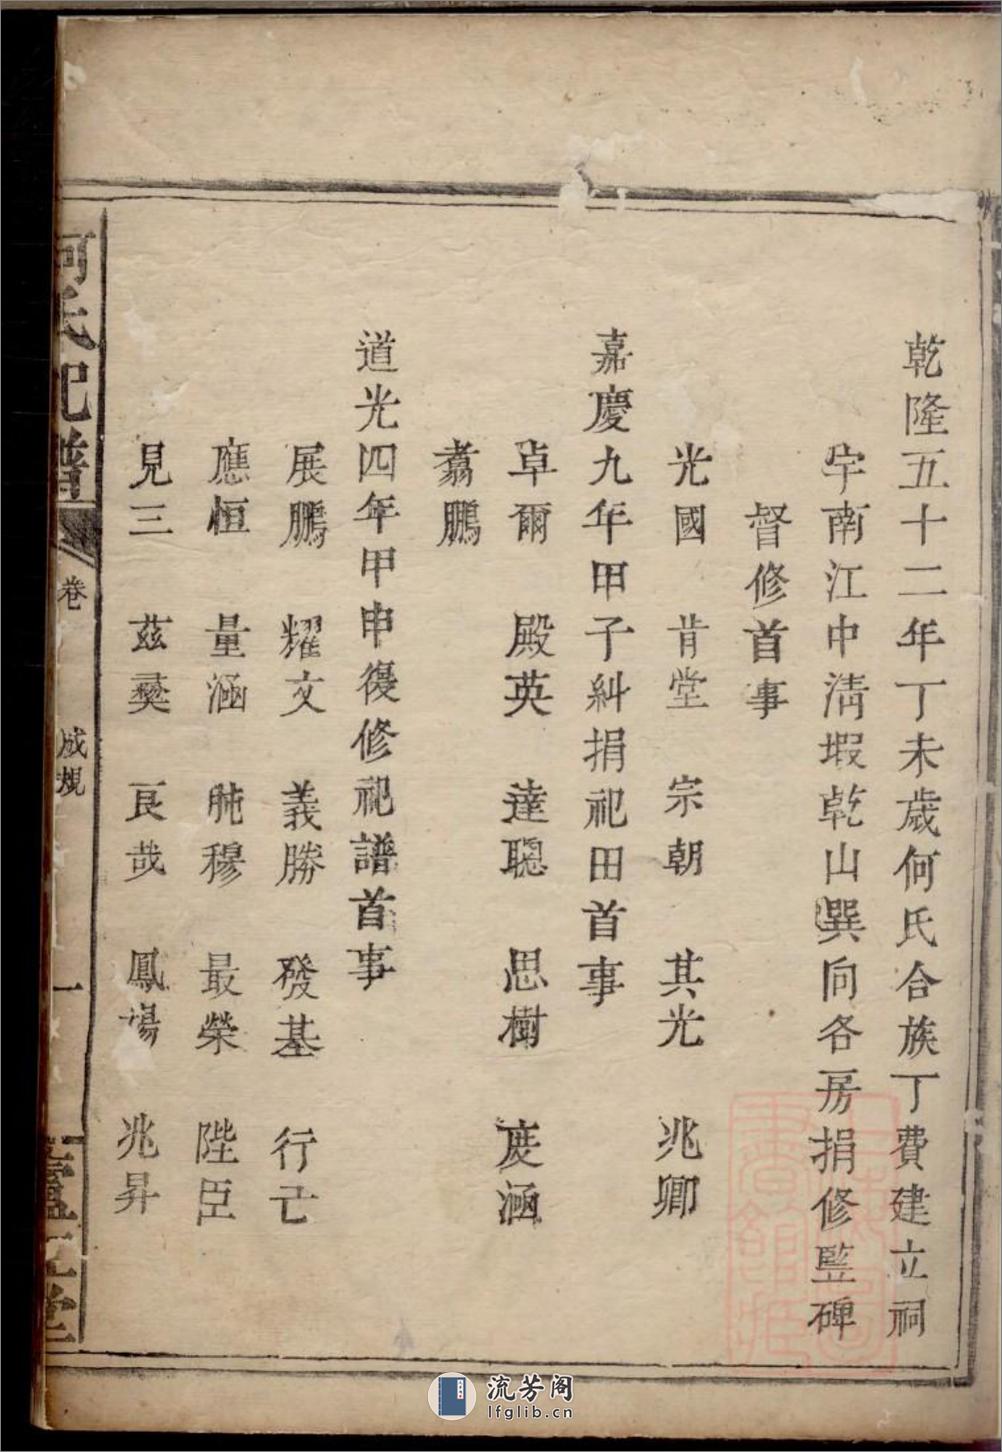 乾隆五十二年丁未歲何氏合族丁費建立祠
宇南江中清塅乾山巽向各房捐修竪碑
督修首事
光國 肯堂 宗朝 其光 兆卿
嘉慶九年甲子糾捐祀田首事
卓爾 殿英 達聰 思樹 度涵
翥鵬
道光四年甲申復修祀譜首事
展鵬 耀文 義勝 發基 行亡
應恒 量涵 肫穆 最榮 陛臣
見三 茲彝 良哉 鳳場 兆昇
何氏祀譜
卷
成規
一
流芳阁
lfglib.cn